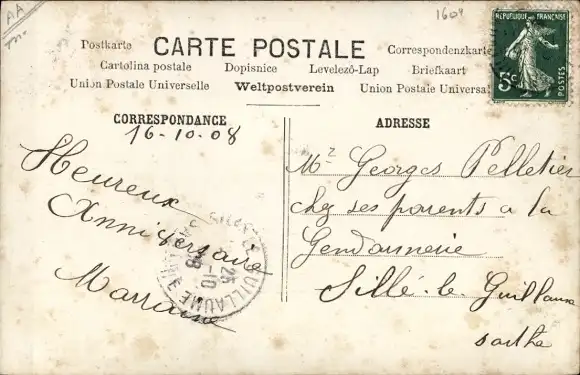 AA
m.
1604
RÉPUBLIQUE FRANÇAISE
5c
POSTES
Postkarte CARTE POSTALE Correspondenzkarte
Cartolina postale Dopisnice Levelező-Lap Briefkaart
Union Postale Universelle Weltpostverein Union Postale Universal
CORRESPONDANCE
16-10-08
Heureux
Anniversaire
Marraine
GUILLAUME
25
-10
08
ADRESSE
Mr Georges Pelletier
chez ses parents a la
Gendarmerie
Sillé-le-Guillaume
sarthe